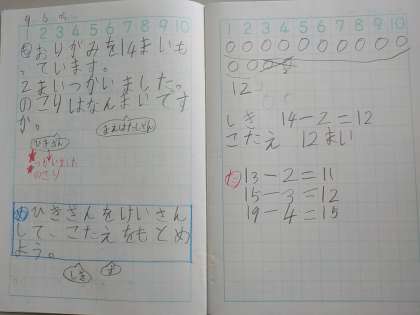 9 5
1 2 3 4 5 6 7 8 9 10
も おりがみを14まいも
っています。
2まいつかいました。
のこりはなんまいです
か。
まえはたしざん
ひきざん
つかいました
のこり
め ひきざんをけいさん
して、こたえをもとめ
よう。
しき
ず
1 2 3 4 5 6 7 8 9 10
12
しき 14-2=12
こたえ 12まい
た 13-2=11
15-3=12
19-4=15